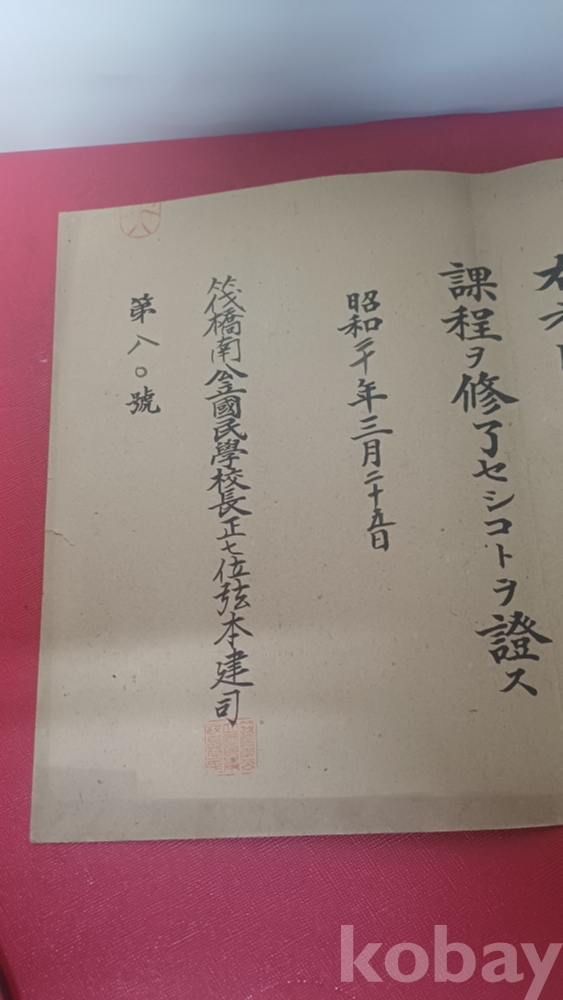 課程ヲ修了セシコトヲ證ス
昭和二十年三月二十五日
筏橋南公立國民學校長正七位弦本建司
第八〇號
kobay